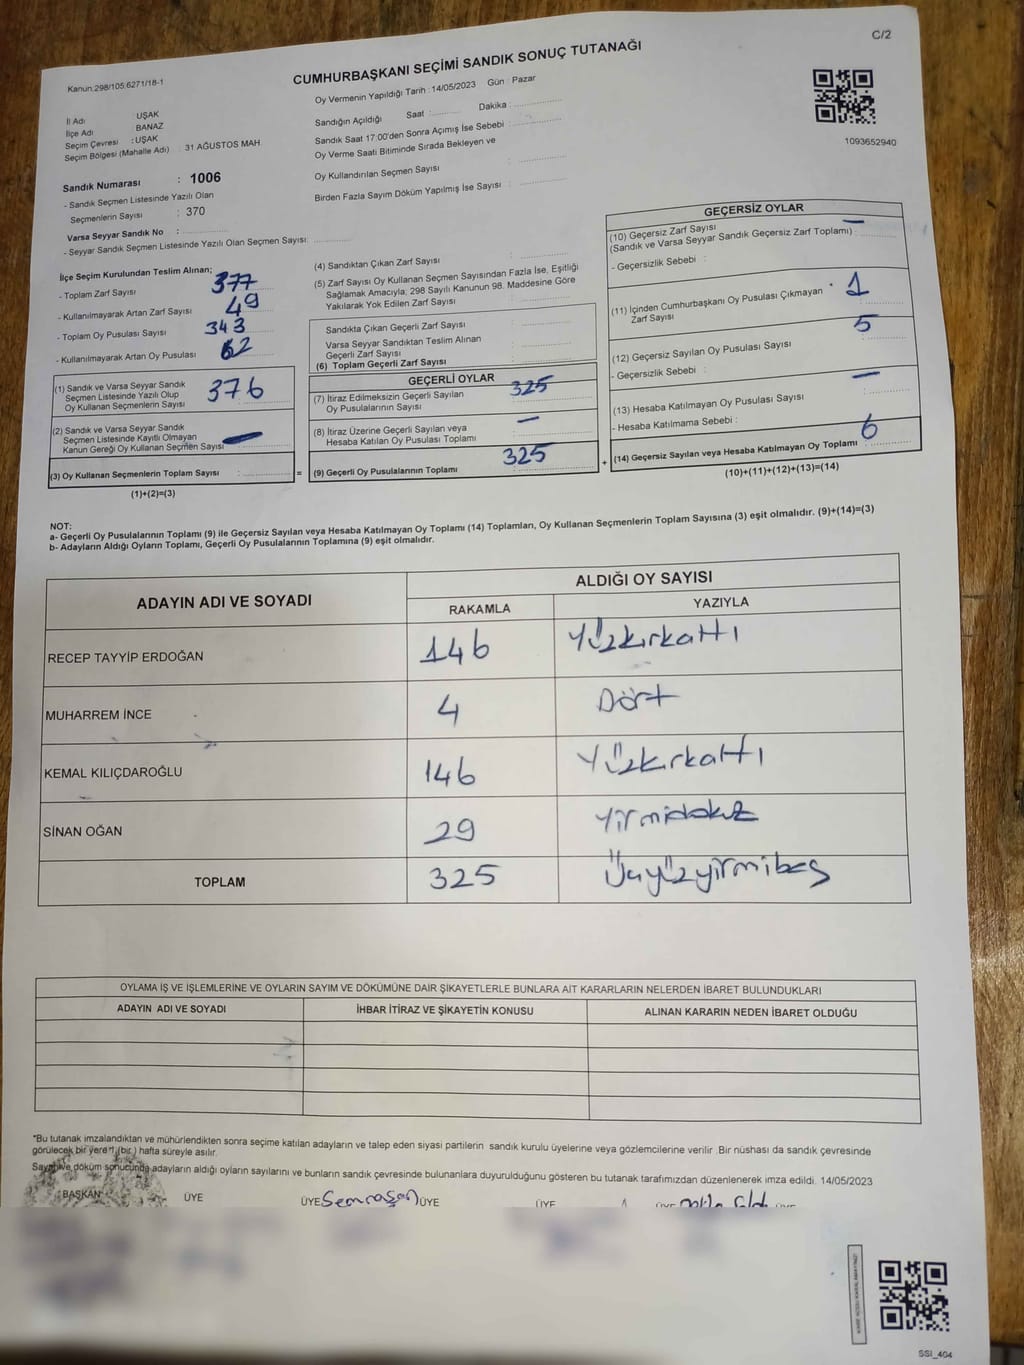 C/2
CUMHURBAŞKANI SEÇİMİ SANDIK SONUÇ TUTANAĞI
Kanun:298/105.6271/18-1
İl Adı UŞAK
İlçe Adı BANAZ
Seçim Çevresi : UŞAK
Seçim Bölgesi (Mahalle Adı) : 31 AĞUSTOS MAH.
Sandık Numarası : 1006
- Sandık Seçmen Listesinde Yazılı Olan
Seçmenlerin Sayısı : 370
Varsa Seyyar Sandık No :
- Seyyar Sandık Seçmen Listesinde Yazılı Olan Seçmen Sayısı:
Oy Vermenin Yapıldığı Tarih : 14/05/2023 Gün : Pazar
Sandığın Açıldığı Saat : Dakika :
Sandık Saat 17:00'den Sonra Açımış İse Sebebi :
Oy Verme Saati Bitiminde Sırada Bekleyen ve
Oy Kullandırılan Seçmen Sayısı :
Birden Fazla Sayım Döküm Yapılmış İse Sayısı :
1093652940
İlçe Seçim Kurulundan Teslim Alınan;
- Toplam Zarf Sayısı 377
- Kullanılmayarak Artan Zarf Sayısı 49
- Toplam Oy Pusulası Sayısı 343
- Kullanılmayarak Artan Oy Pusulası 62
(1) Sandık ve Varsa Seyyar Sandık
Seçmen Listesinde Yazılı Olup
Oy Kullanan Seçmenlerin Sayısı 376
(2) Sandık ve Varsa Seyyar Sandık
Seçmen Listesinde Kayıtlı Olmayan
Kanun Gereği Oy Kullanan Seçmen Sayısı —
(3) Oy Kullanan Seçmenlerin Toplam Sayısı :
(1)+(2)=(3)
(4) Sandıktan Çıkan Zarf Sayısı :
(5) Zarf Sayısı Oy Kullanan Seçmen Sayısından Fazla İse, Eşitliği
Sağlamak Amacıyla, 298 Sayılı Kanunun 98. Maddesine Göre
Yakılarak Yok Edilen Zarf Sayısı :
Sandıkta Çıkan Geçerli Zarf Sayısı :
Varsa Seyyar Sandıktan Teslim Alınan
Geçerli Zarf Sayısı :
(6) Toplam Geçerli Zarf Sayısı :
GEÇERLİ OYLAR
(7) İtiraz Edilmeksizin Geçerli Sayılan
Oy Pusulalarının Sayısı 325
(8) İtiraz Üzerine Geçerli Sayılan veya
Hesaba Katılan Oy Pusulası Toplamı —
= (9) Geçerli Oy Pusulalarının Toplamı 325
GEÇERSİZ OYLAR
(10) Geçersiz Zarf Sayısı
(Sandık ve Varsa Seyyar Sandık Geçersiz Zarf Toplamı) : —
- Geçersizlik Sebebi :
(11) İçinden Cumhurbaşkanı Oy Pusulası Çıkmayan
Zarf Sayısı : 1
(12) Geçersiz Sayılan Oy Pusulası Sayısı 5
- Geçersizlik Sebebi :
(13) Hesaba Katılmayan Oy Pusulası Sayısı —
- Hesaba Katılmama Sebebi :
+ (14) Geçersiz Sayılan veya Hesaba Katılmayan Oy Toplamı 6
(10)+(11)+(12)+(13)=(14)
NOT:
a- Geçerli Oy Pusulalarının Toplamı (9) ile Geçersiz Sayılan veya Hesaba Katılmayan Oy Toplamı (14) Toplamları, Oy Kullanan Seçmenlerin Toplam Sayısına (3) eşit olmalıdır. (9)+(14)=(3)
b- Adayların Aldığı Oyların Toplamı, Geçerli Oy Pusulalarının Toplamına (9) eşit olmalıdır.
ADAYIN ADI VE SOYADI ALDIĞI OY SAYISI
RAKAMLA YAZIYLA
RECEP TAYYİP ERDOĞAN 146 Yüzkırkaltı
MUHARREM İNCE 4 Dört
KEMAL KILIÇDAROĞLU 146 Yüzkırkaltı
SİNAN OĞAN 29 Yirmidokuz
TOPLAM 325 Üçyüzyirmibeş
OYLAMA İŞ VE İŞLEMLERİNE VE OYLARIN SAYIM VE DÖKÜMÜNE DAİR ŞİKAYETLERLE BUNLARA AİT KARARLARIN NELERDEN İBARET BULUNDUKLARI
ADAYIN ADI VE SOYADI İHBAR İTİRAZ VE ŞİKAYETİN KONUSU ALINAN KARARIN NEDEN İBARET OLDUĞU
*Bu tutanak imzalandıktan ve mühürlendikten sonra seçime katılan adayların ve talep eden siyasi partilerin sandık kurulu üyelerine veya gözlemcilerine verilir .Bir nüshası da sandık çevresinde
görülecek bir yere 1 (bir ) hafta süreyle asılır.
Sayım ve döküm sonucunda adayların aldığı oyların sayılarını ve bunların sandık çevresinde bulunanlara duyurulduğunu gösteren bu tutanak tarafımızdan düzenlenerek imza edildi. 14/05/2023
BAŞKAN ÜYE ÜYE ÜYE ÜYE ÜYE ÜYE
SSİ_404